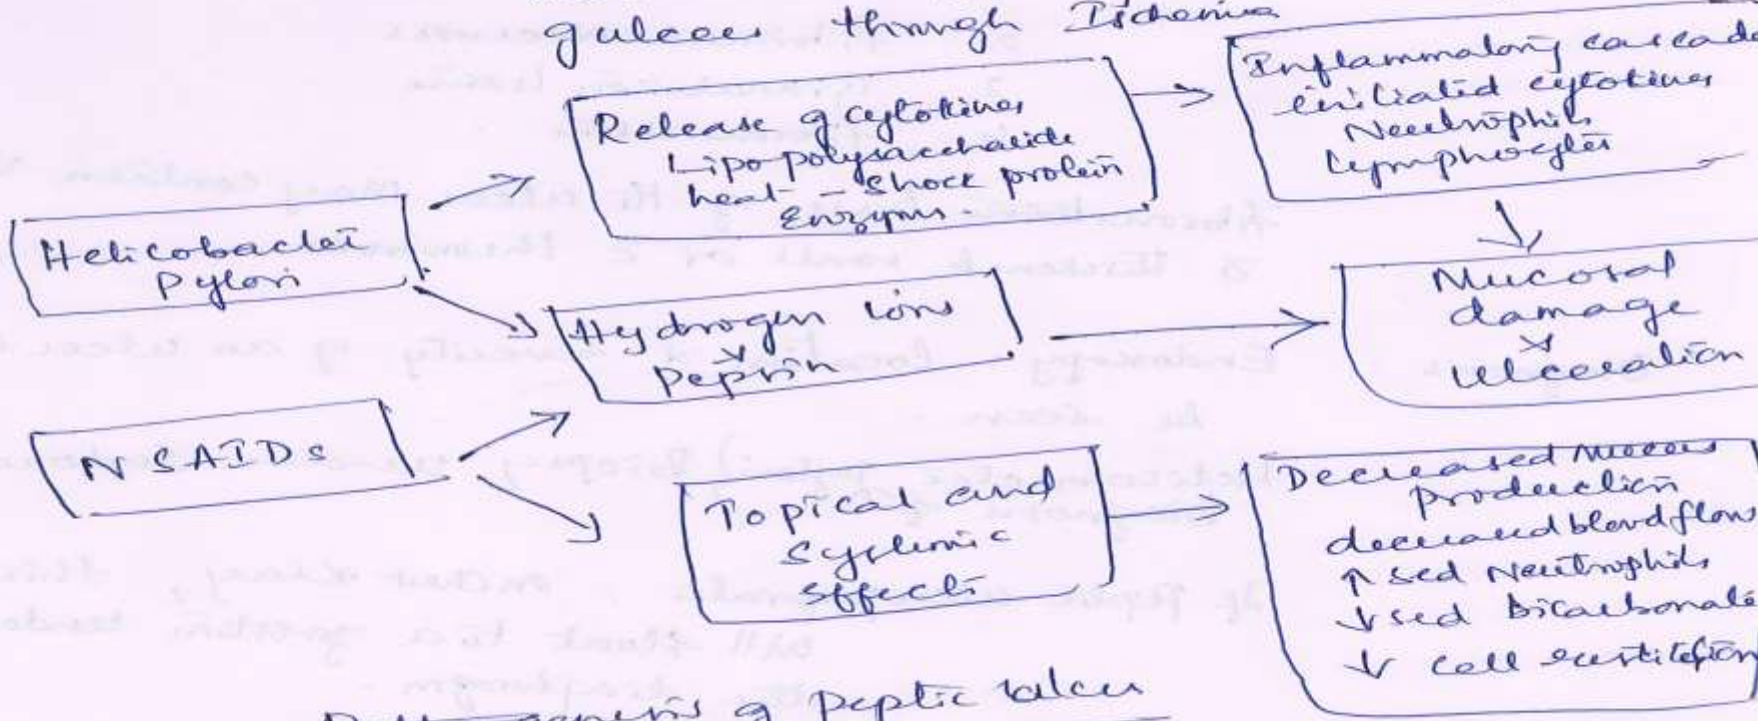 g ulcers through Ischemia
Release of cytokines
Lipo-polysaccharide
heat - Shock protein
Enzymes.
Inflammatory cascade
initiated cytokines
Neutrophils
Lymphocytes
Helicobacter
Pylori
Hydrogen ions
Pepsin
Mucosal
damage
ulceration
NSAIDs
Topical and
Systemic
effects
Decreased Mucus
production
decreased blood flow
↑sed Neutrophils
↓sed Bicarbonate
↓ cell restitution
of Peptic ulcer